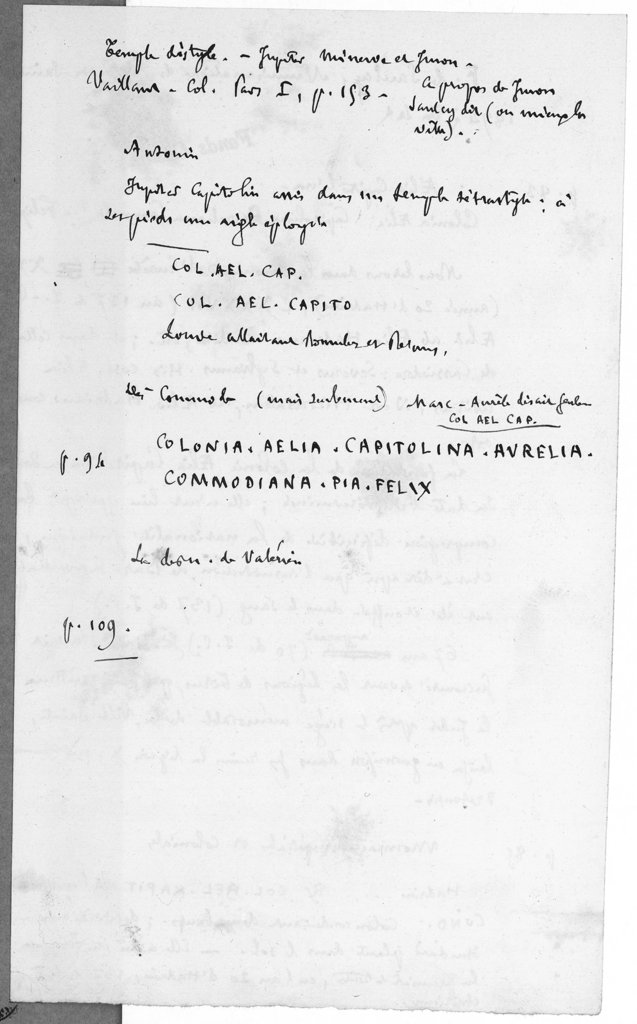 Temple distyle. – Jupiter Minerve et Junon –
Vaillant – Col. Pars I, p. 153 – A propos de Junon
Saulcy dit (ou mieux la
ville).
Antonin
Jupiter Capitolin assis dans un temple tétrastyle : à
ses pieds un aigle éployé
COL. AEL. CAP.
COL. AEL. CAPITO
Louve allaitant Romulus et Remus,
dès Commode (mais seulement) Marc-Aurèle disait
COL AEL CAP.
p. 94 COLONIA. AELIA. CAPITOLINA. AVRELIA.
COMMODIANA. PIA. FELIX
La dern. de Valérien
p. 109.